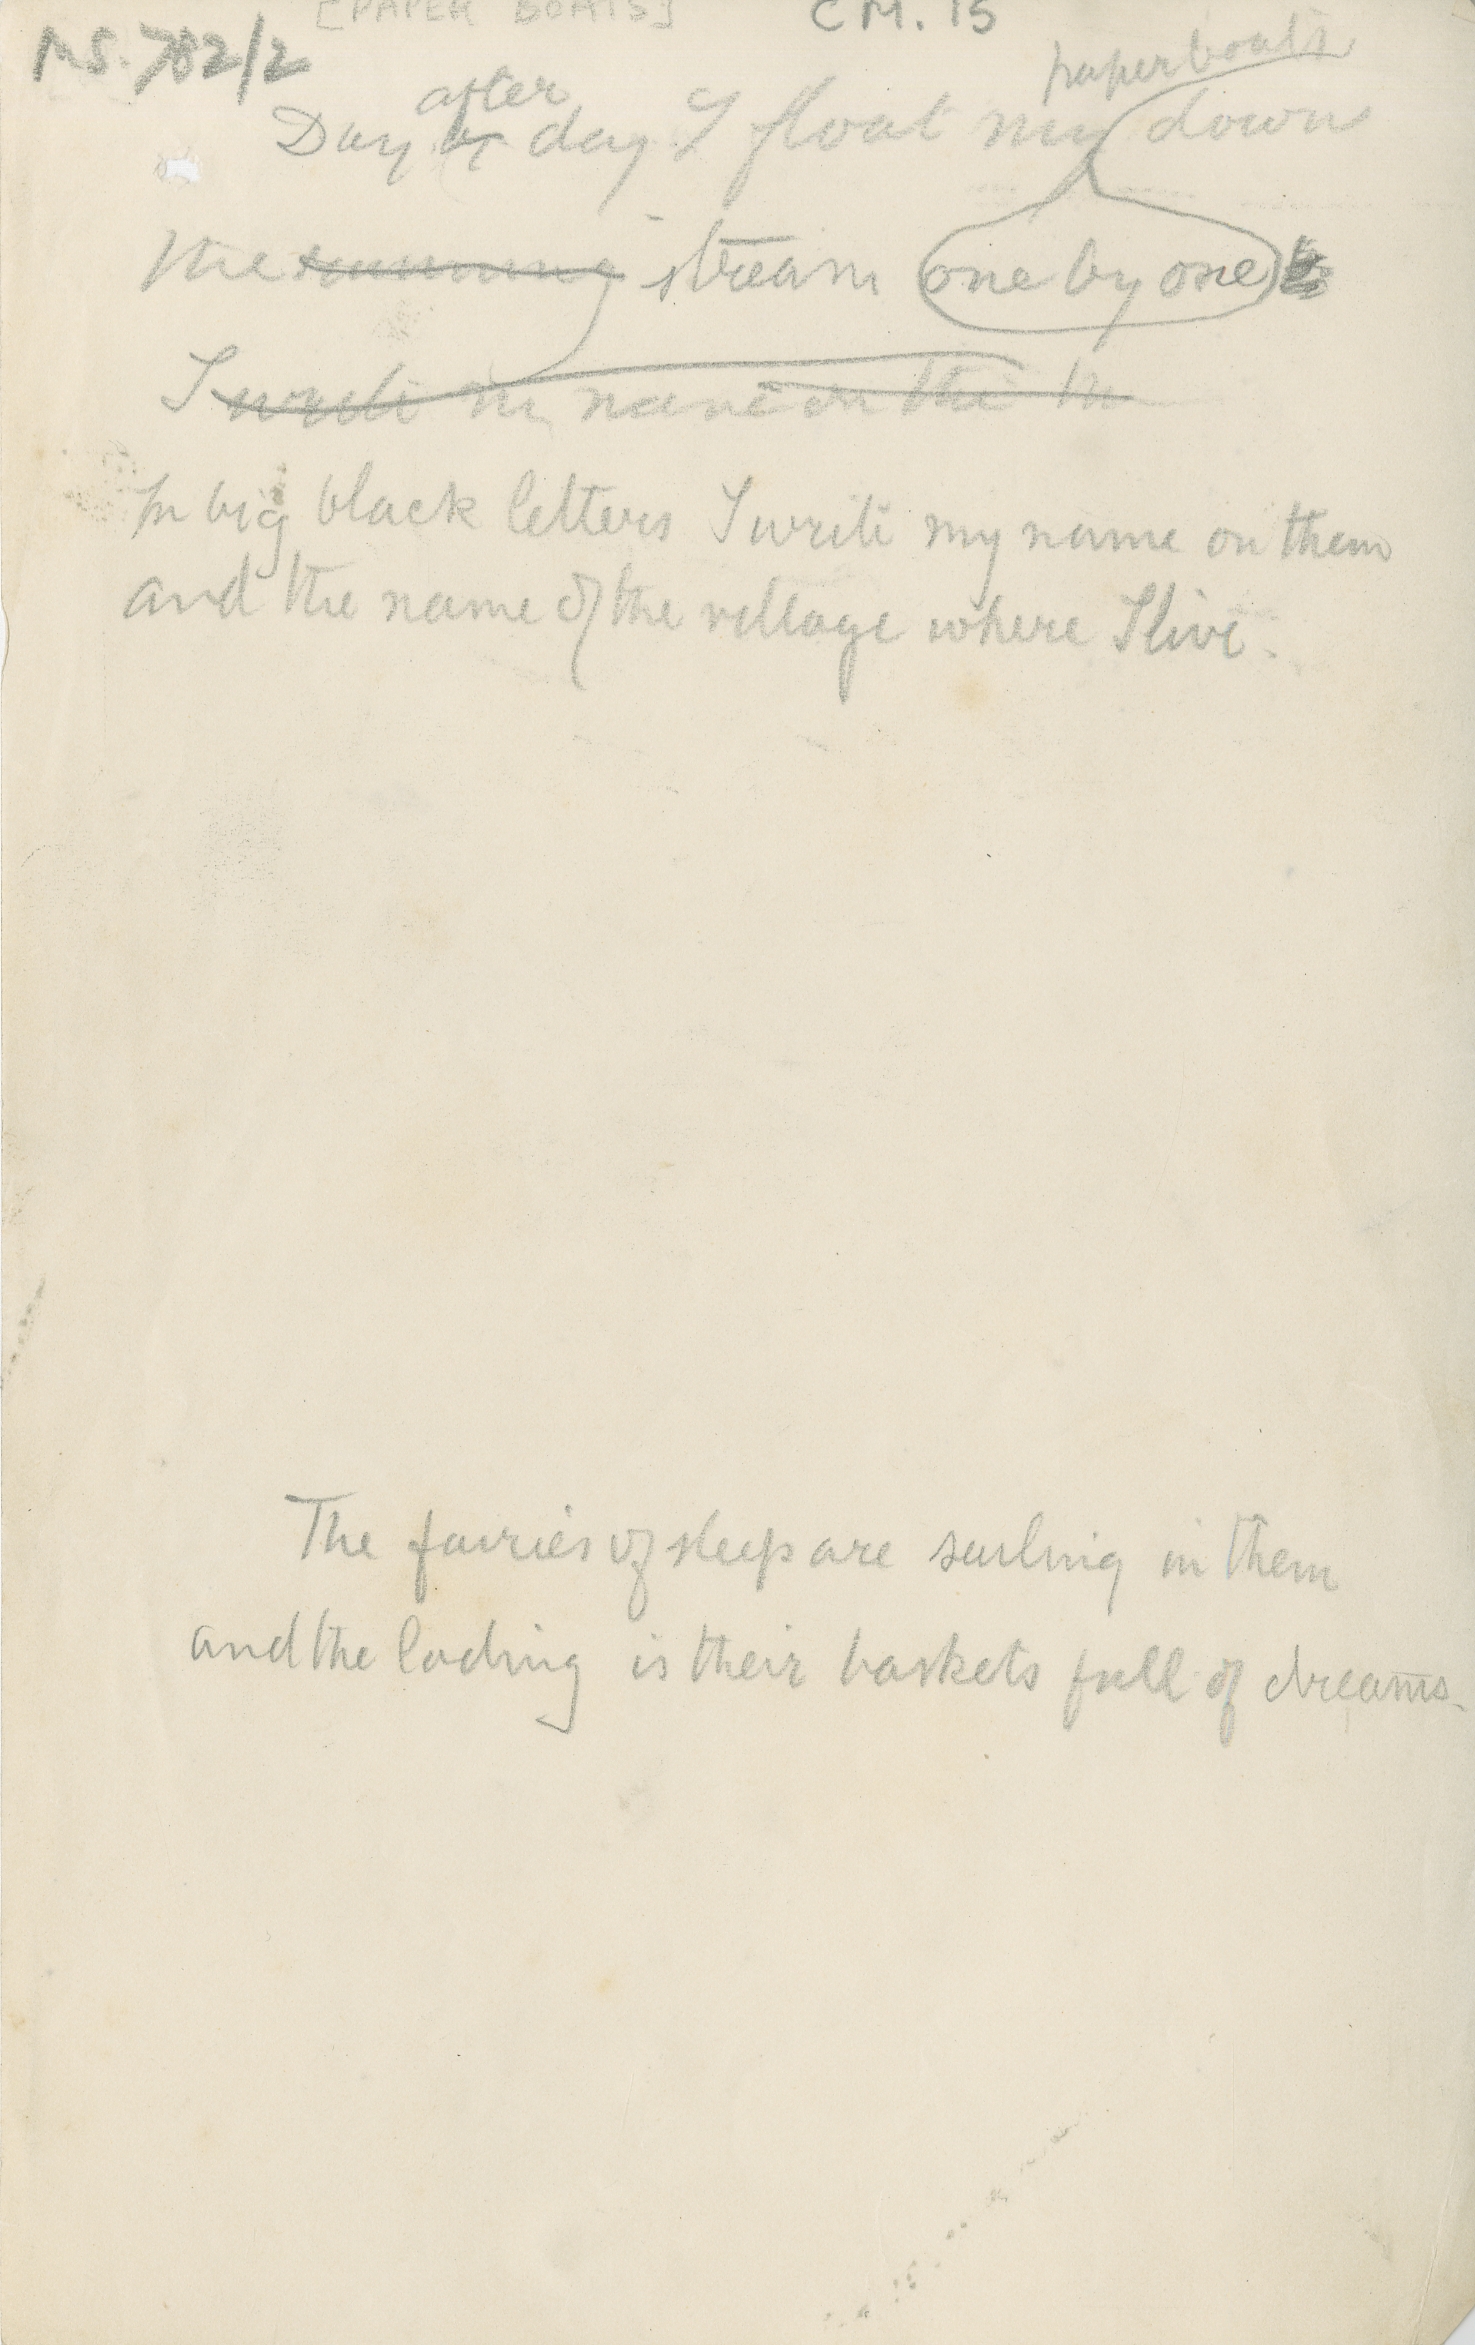 [PAPER BOATS] CM. 15
MS. 782/2
paperboats
after
Day by day I float my down
the running stream one by one
I write my name on the
In big black letters I write my name on them
and the name of the village where I live.
The fairies of sleep are sailing in them
and the lading is their baskets full of dreams.